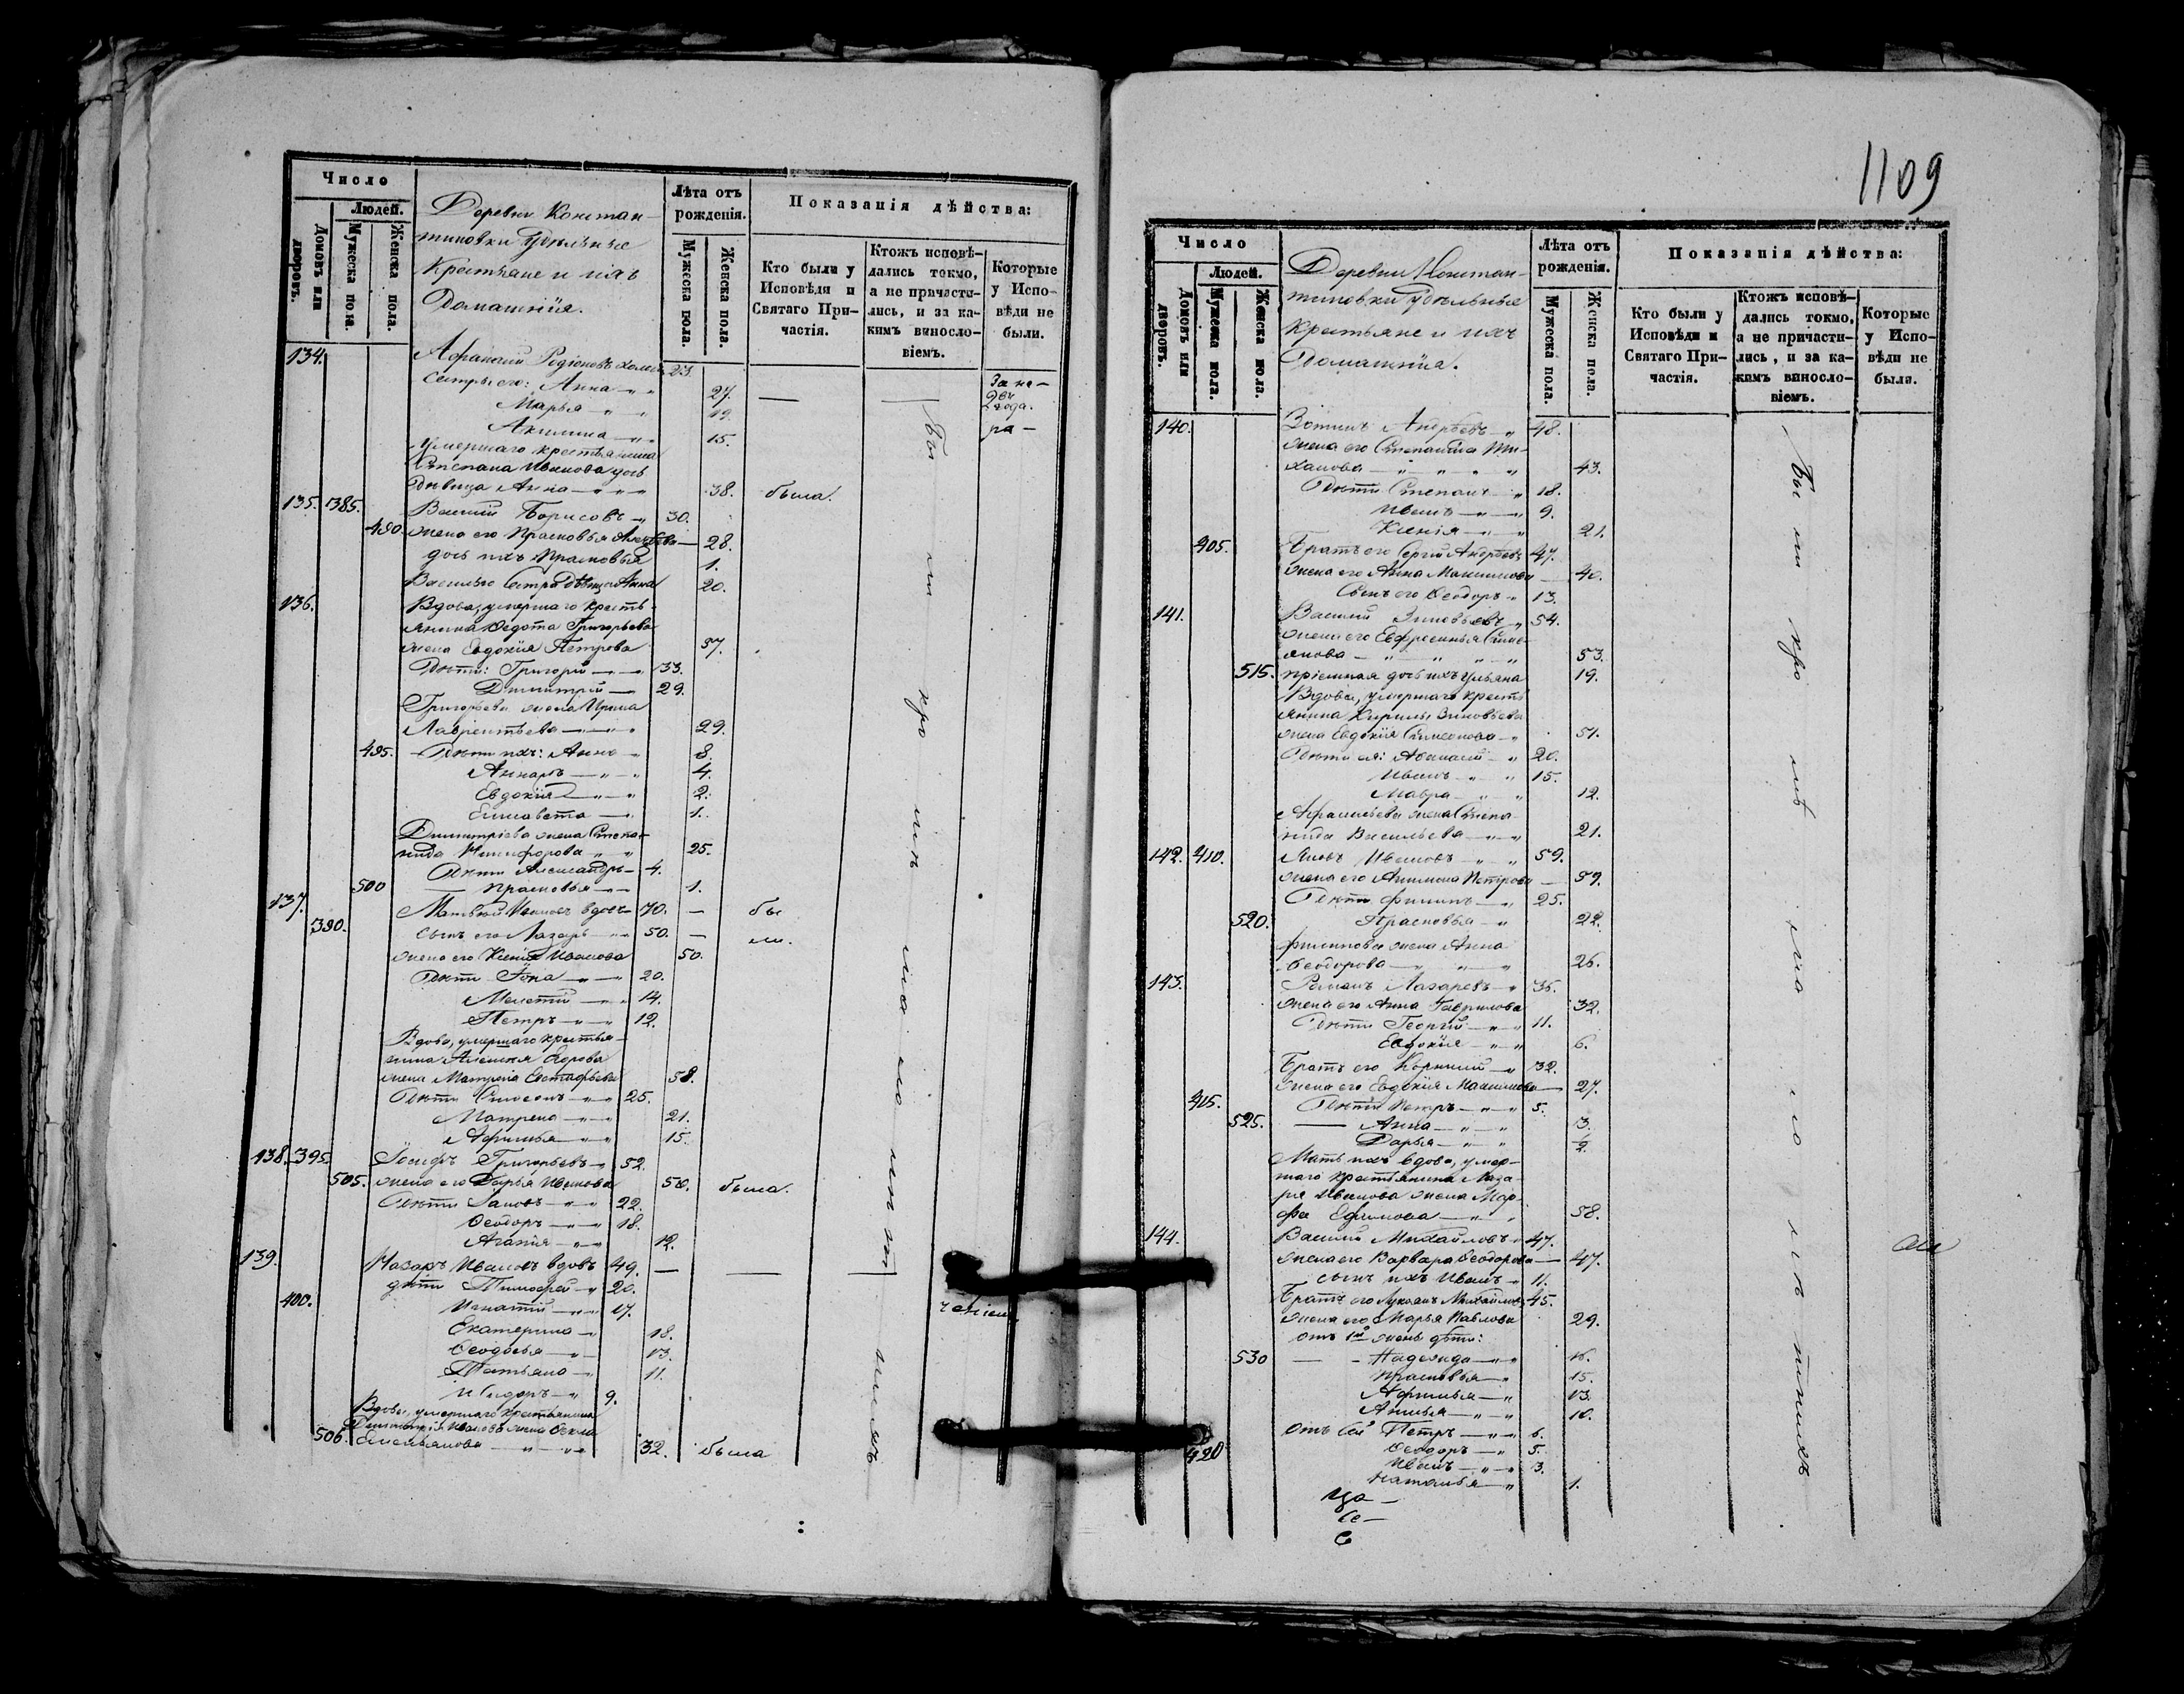 Число
Людей.
Домовъ или дворовъ.
Мужеска пола.
Женска пола.
Деревни Констан-
тиновки удѣльные
Крестьяне и ихъ
Домашнія.
Лѣта отъ рожденія.
Мужеска пола.
Женска пола.
Показанія дѣйства:
Кто были у Исповѣди и Святаго При-частія.
Ктожъ исповѣ-дались токмо, а не причасти-лись, и за ка-кимъ винносло-віемъ.
Которые у Испо-вѣди не были.
134. Афанасій Родіоновъ 23.
Сестры его: Анна 27.
Марья 19.
Акилина 15.
умершаго крестьянина
Степана Иванова дочь
Дѣвица Анна 38. была.
135. 385. Василій Борисовъ 30.
490. жена его Прасковья 28.
дочь ихъ Прасковья 1.
Васильева Сестра Дѣвица Анна 20.
136. Вдова, умершаго кресть-
янина Федота Григорьева
жена Евдокія Петрова 57.
Дѣти: Григорій 33.
Димитрій 29.
Григорьева жена Ирина
Лаврентьева 29.
495. Дѣти ихъ: Анна 8.
4.
Евдокія 2.
Елисавета 1.
Димитріева жена Степа-
нида Никифорова 25.
Дѣти Александръ 4.
500 Прасковья 1.
137. Матвей Ивановъ вдовъ 70. бы
390. сынъ его Лазарь 50. ли.
жена его Ксенія Иванова 50.
Дѣти Іона 20.
Мелетій 14.
Петръ 12.
Вдова, умершаго крестья-
нина Алексея
жена Матрена Евстафьева 58.
Дѣти Симеонъ 25.
Матрена 21.
Афимья 15.
138. 395. Іосифъ Григорьевъ 52.
505. жена его Дарья Иванова 50. была.
Дѣти Іаковъ 22.
Ѳеодоръ 18.
Агапія 12.
139. Назаръ Ивановъ вдовъ 49.
дѣти Тимофей 20.
400. Игнатій 17.
Екатерина 18.
Ѳеодосья 13.
Татьяна 11.
Исидоръ 9.
Вдова, умершаго крестьянина
Димитрія Иванова жена Ѳекла
506. Емельянова 32. была
1109
Число
Людей.
Домовъ или дворовъ.
Мужеска пола.
Женска пола.
Деревни Констан-
тиновки удѣльные
крестьяне и ихъ
Домашнія.
Лѣта отъ рожденія.
Мужеска пола.
Женска пола.
Показанія дѣйства:
Кто были у Исповѣди и Святаго При-частія.
Ктожъ исповѣ-дались токмо, а не причасти-лись, и за ка-кимъ винносло-віемъ.
Которые у Испо-вѣди не были.
140. Зотикъ Андреевъ 48.
жена его Степанида
43.
Дѣти Степанъ 18.
Иванъ 9.
Ксенія 21.
405. Братъ его Сергій Андреевъ 47.
жена его Анна Максимова 40.
Сынъ его Ѳеодоръ 13.
141. Василій Зиновьевъ 54.
жена его Евфросинья
53.
515. пріемная дочь ихъ Ульяна 19.
Вдова, умершаго кресть
янина Кирилы Зиновьева
жена Евдокія Симеонова 51.
Дѣти ея: Афанасій 20.
Иванъ 15.
Мавра 12.
Афанасьева жена Степа-
нида Васильева 21.
142. 410. Яковъ Ивановъ 59.
жена его Акилина Петрова 59.
Дѣти Филипъ 25.
520. Прасковья 22.
Филипова жена Анна
Ѳеодорова 26.
143. Романъ Лазаревъ 36.
жена его Анна Гаврилова 32.
Дѣти Георгій 11.
Евдокія 6.
Братъ его Корнилій 32.
жена его Евдокія Максимова 27.
415. Дѣти Петръ 5.
525. Анна 3.
Дарья ½.
Мать ихъ вдова, умер-
шаго крестьянина Лаза-
ря Иванова жена Мар-
фа Ефимова 58.
144. Василій Михайловъ 47.
жена его Варвара Ѳеодорова 47.
сынъ ихъ Иванъ 11.
Братъ его Лукіанъ Михайловъ 45.
жена его Марья Павлова 29.
отъ 1й жены дѣти:
530 Надежда 16.
Прасковья 15.
Афимья 13.
Анисья 10.
отъ сей Петръ 6.
Ѳеодоръ 5.
420 Иванъ 3.
Наталья 1.